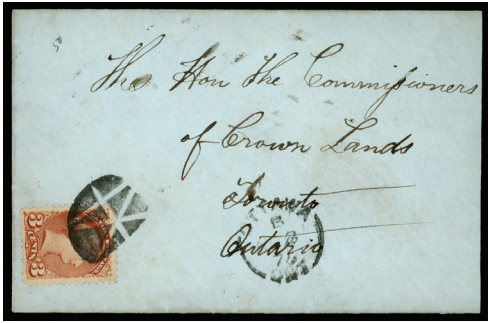 50
The Hon The Commissioners
of Crown Lands
Toronto
Ontario
3 CENTS 3
ONT